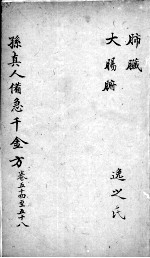 肺臟
大腸腑
孫真人備急千金方 卷五十四至五十八
逸氏